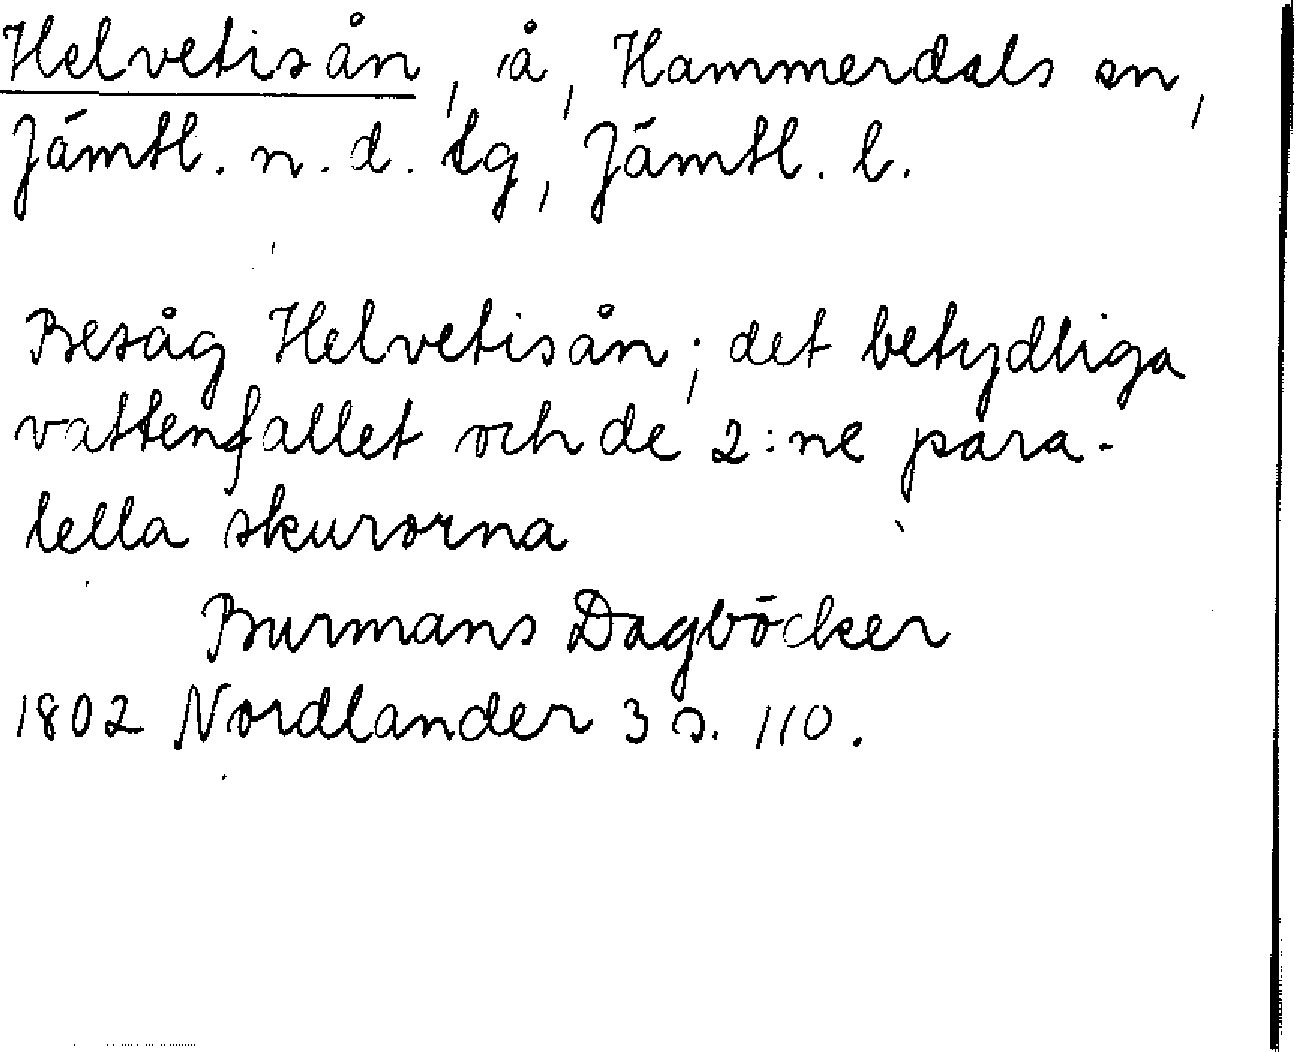 Helvetisån, å, Hammerdals sn,
Jämtl. n. d. tg, Jämtl. l.
Besåg Helvetisån; det betydliga
vattenfallet och de 2:ne para-
lella skurorna
Burmans Dagböcker
1802 Nordlander 3 s. 110.